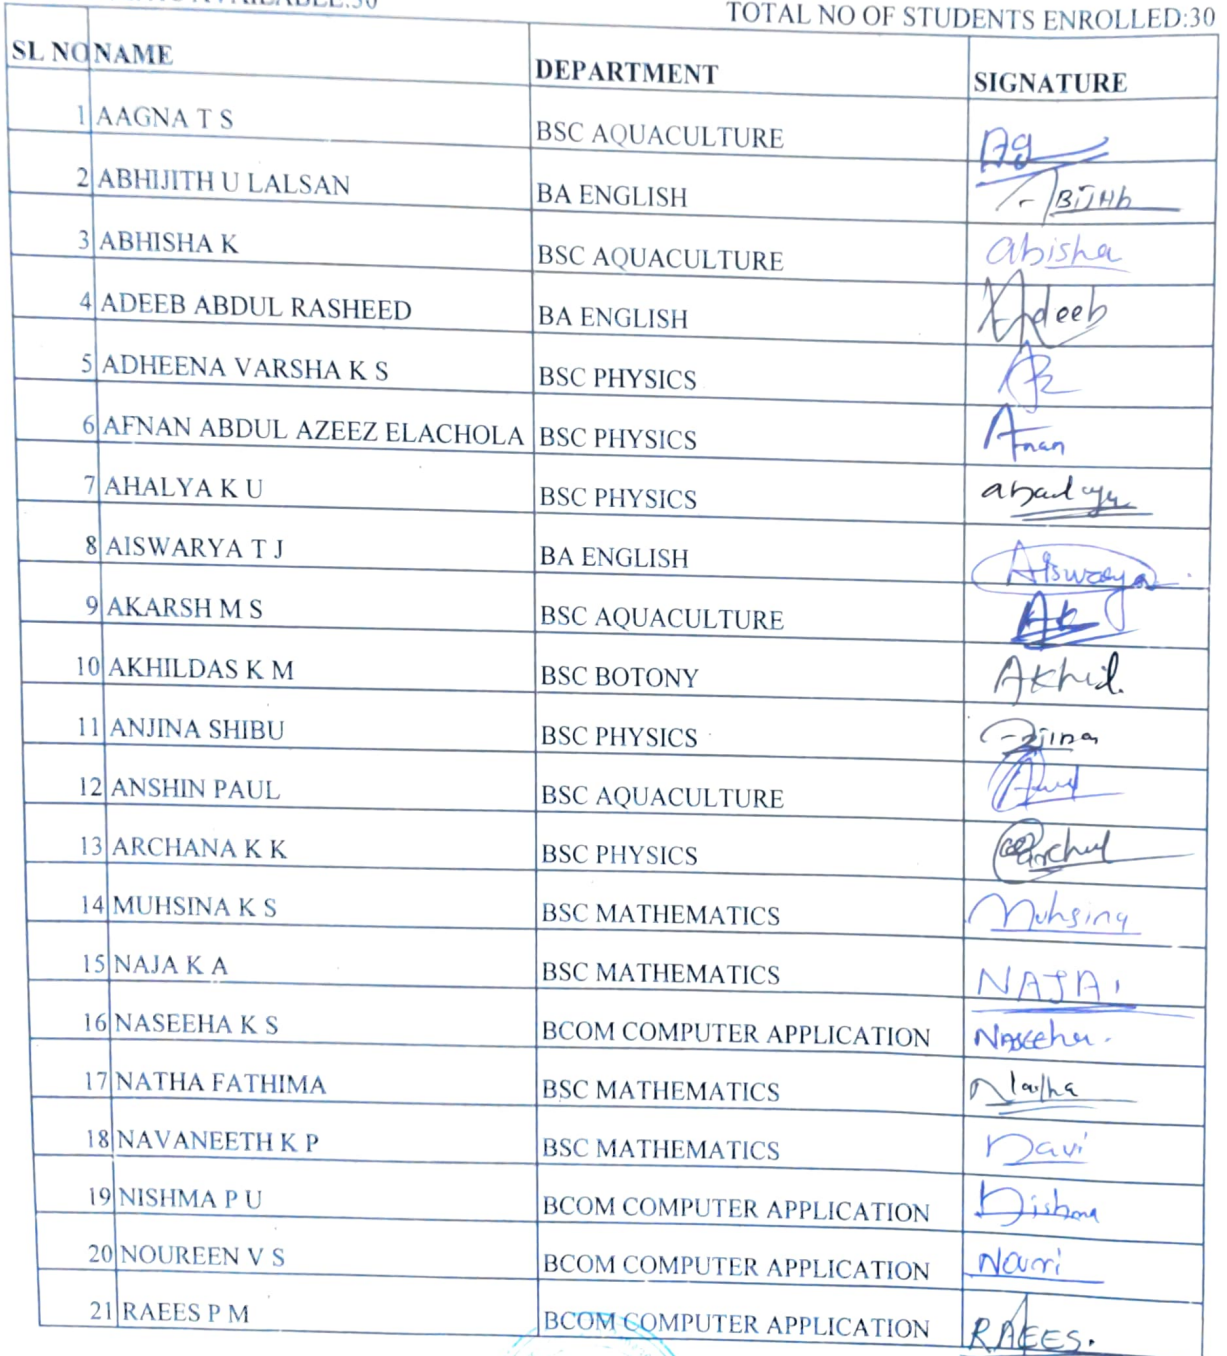 TOTAL NO OF STUDENTS ENROLLED:30
SL NO NAME DEPARTMENT SIGNATURE
1 AAGNA T S BSC AQUACULTURE Ag
2 ABHIJITH U LALSAN BA ENGLISH
3 ABHISHA K BSC AQUACULTURE abisha
4 ADEEB ABDUL RASHEED BA ENGLISH Adeeb
5 ADHEENA VARSHA K S BSC PHYSICS
6 AFNAN ABDUL AZEEZ ELACHOLA BSC PHYSICS Afnan
7 AHALYA K U BSC PHYSICS
8 AISWARYA T J BA ENGLISH
9 AKARSH M S BSC AQUACULTURE Ak
10 AKHILDAS K M BSC BOTONY Akhil.
11 ANJINA SHIBU BSC PHYSICS
12 ANSHIN PAUL BSC AQUACULTURE
13 ARCHANA K K BSC PHYSICS
14 MUHSINA K S BSC MATHEMATICS Muhsina
15 NAJA K A BSC MATHEMATICS NAJA
16 NASEEHA K S BCOM COMPUTER APPLICATION Naseeha.
17 NATHA FATHIMA BSC MATHEMATICS Natha
18 NAVANEETH K P BSC MATHEMATICS Navi
19 NISHMA P U BCOM COMPUTER APPLICATION Nishma
20 NOUREEN V S BCOM COMPUTER APPLICATION
21 RAEES P M BCOM COMPUTER APPLICATION RAEES.